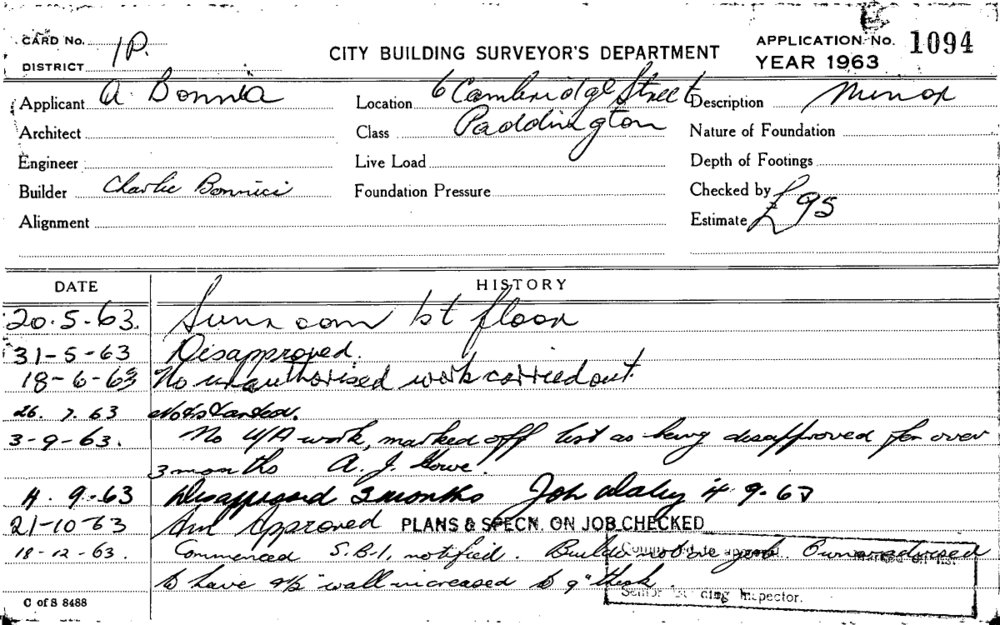 CARD No. 1P.
DISTRICT
CITY BUILDING SURVEYOR'S DEPARTMENT
APPLICATION No. 1094
YEAR 1963
Applicant A. Bonnia
Location 6 Cambridge Street
Paddington
Description Minor
Architect
Class
Nature of Foundation
Engineer
Live Load
Depth of Footings
Builder Charlie Bonnici
Foundation Pressure
Checked by
Alignment
Estimate £95
DATE HISTORY
20.5-63. Sunroom 1st floor
31-5-63 Disapproved.
18-6-63 No unauthorised work carried out.
26.7.63 Not started.
3-9-63. No U/A work, marked off list as being disapproved for over
3 months A. J.
4.9.-63 Disapproved 3 months 4.9-63
21-10-63 Approved PLANS & SPECN. ON JOB CHECKED
18-12-63. Commenced S.B.I. notified. Builder not on job. Owner advised
to have 4½" wall increased to 9" thick.
Inspector.
C of S 8488